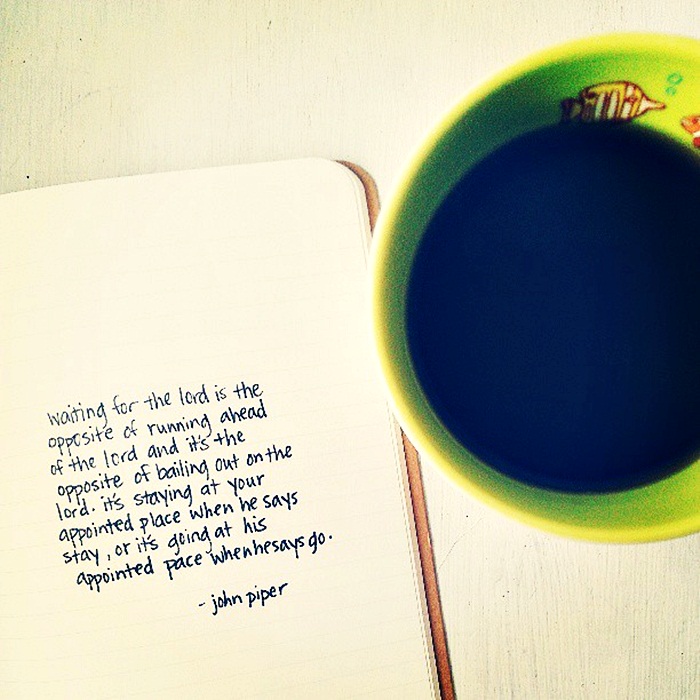 waiting for the lord is the
opposite of running ahead
of the lord and it's the
opposite of bailing out on the
lord. it's staying at your
appointed place when he says
stay, or it's going at his
appointed pace when he says go.
- john piper